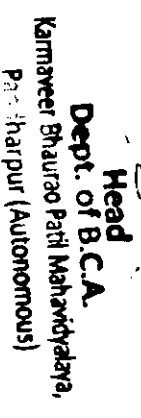 Head
Dept. of B.C.A.
Karmaveer Bhaurao Patil Mahavidyalaya,
(Autonomous)